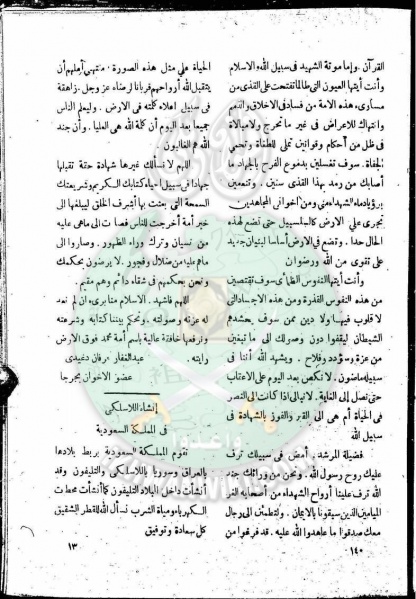 القرآن. وإما موتة الشهيد في سبيل الله والاسلام
وأنت أيتها العيون التي طالما تفتحت على القذى من
مساوىء هذه الأمة من فساد في الأخلاق والذمم
وانتهاك للاعراض في غير ما تحرج ولامبالاة
في ظل من أحكام وقوانين تملى للطغاة وتحمي
الجفاة. سوف تغسلين بدموع الفرح بالجهاد ما
أصابك من رمد بهذا القذى سنين. وتنعمين
برؤية دماء الشهداء مني ومن اخواني المجاهدين
تجري على الارض كالسلسبيل حتى تضع لهذه
الحال حدا. وتضع في الأرض أساسا لبنيان جديد
على تقوى من الله ورضوان
وأنت أيتها النفوس الظمأى سوف تقتصين
من هذه النفوس القذرة ومن هذه الاجساد التي
لا قلوب فيها ولا دين ممن سوف يحشدهم
الشيطان ليقفوا دون وصولك الى ما تبغين
من عزة وسؤدد وفلاح. ويشهد الله أننا في
سبيله ماضون. لا نكص بعد اليوم على الاعقاب
حتى نصل إلى الغاية. لا نبالي اذا كانت الى النصر
في الحياة أم هي الى القبر والفوز بالشهادة في
سبيل الله
فضيلة المرشد. أمض في سبيلك ترف
عليك روح رسول الله. ونحن من ورائك جند
الله ترف علينا أرواح الشهداء من أصحابه الغر
الميامين الذين سبقونا بالايمان. ولتطمئن الى رجال
معك صدقوا ما عاهدوا الله عليه. قد فرغوا من
الحياة على مثل هذه الصورة. منتهى أملهم أن
يتقبل الله أرواحهم قربانا لرضاه عز وجل. زاهقة
في سبيل اعلاء كلمته في الارض. وليعلم الناس
جميعا بعد اليوم أن كلمة الله هي العليا. وأن جند
الله هم الغالبون.
اللهم لا نسألك غيرها شهادة حقة تقبلها
جهادا في سبيل احياء كتابك الكريم وشريعتك
السمحة التي بعثت بها أشرف الخلق ليبلغها الى
خير أمة أخرجت للناس فصات الى ماهى عليه
من نسيان وترك وراء الظهور. وصاروا الى
ماهم عليه من ضلال وفجور. لا يرضون بحكمك
ونحن بحكمهم في شقاء دائم وهم مقيم.
اللهم فاشهد. الاسلام منا برىء. ان لم نعد
له عزته وصولته. ونحكم بيننا كتابه وشرعته
ونرفعها خافقة عالية باسم أمة محمد فوق الأرض
رايته.
عبد الغفار عرفان دغيدى
عضو الاخوان بجرجا
إنشاء اللاسلكي
في المملكة السعودية
تقوم المملكة السعودية بربط بلادها
بالعراق وسوريا باللاسلكي والتليفون وقد
أنشأت داخل البلاد التليفون كما أنشأت محطات
الكهرباء ومياة الشرب نسأل الله للقطر الشقيق
كل سعادة وتوفيق
١٣
١٤٠
وأعدوا